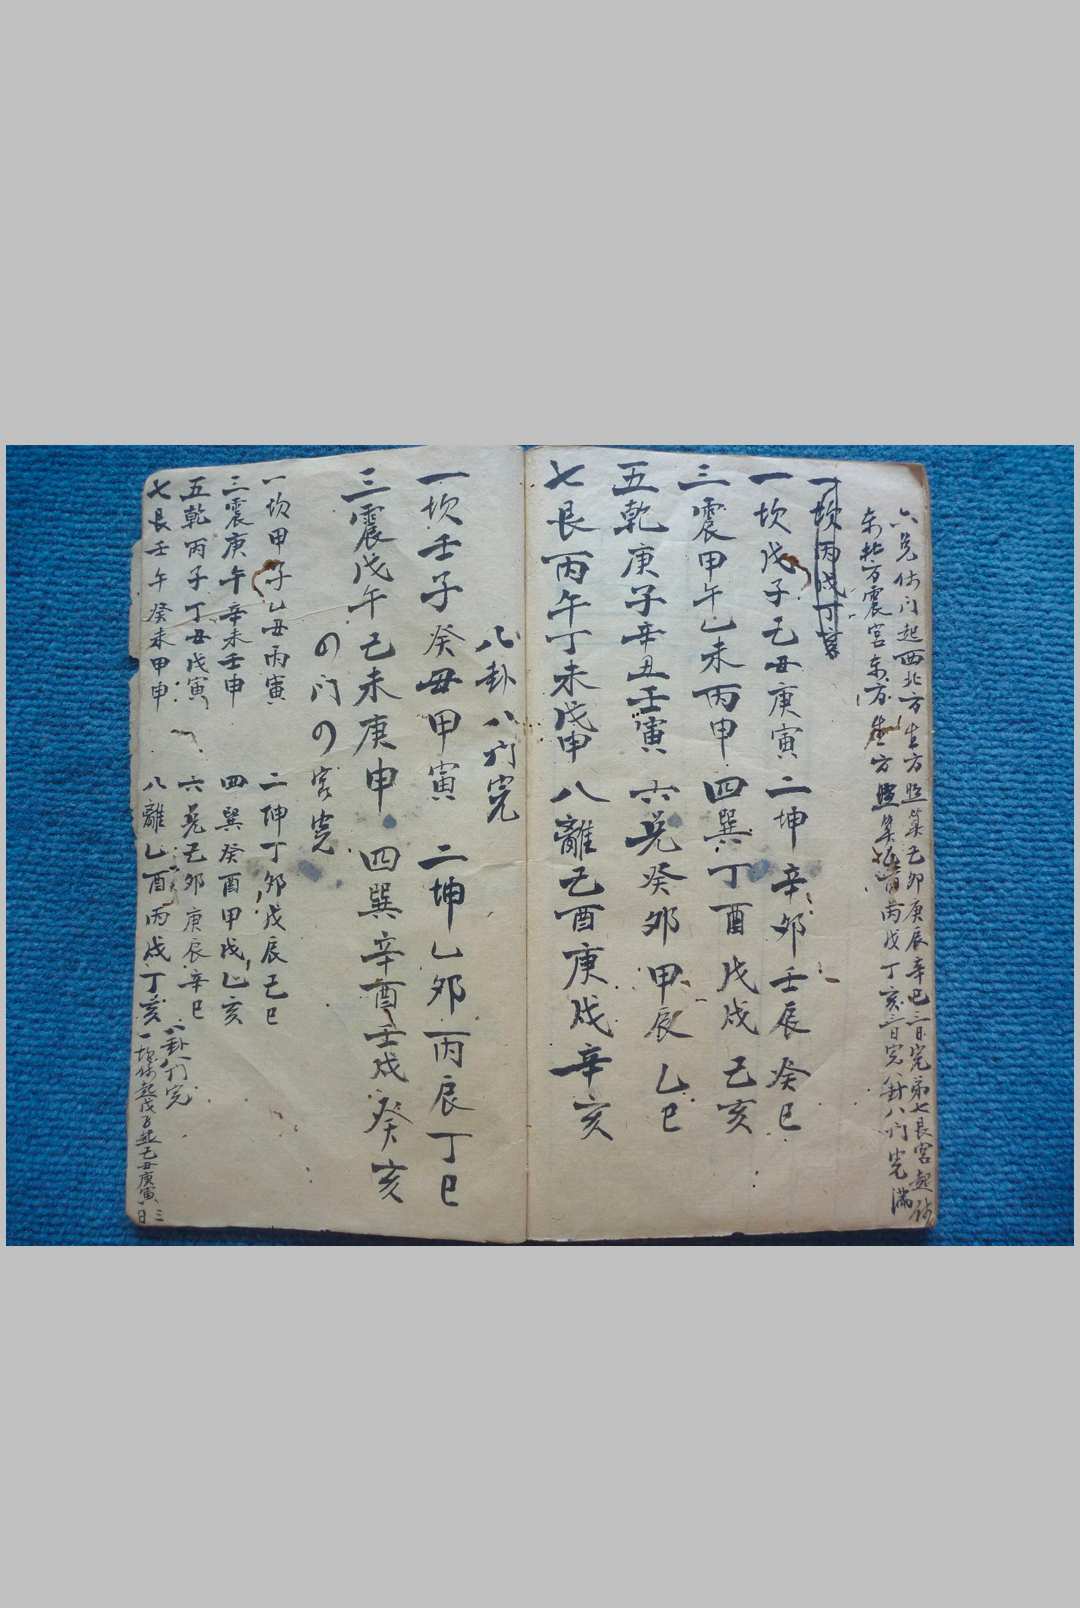 六兑休门起西北方生方照算己卯庚辰辛巳三日完第七艮宫起休
东北方震宫东方生方照算乙酉丙戌丁亥三日完八卦八门完满
一坎丙戌丁亥
一坎戊子己丑庚寅 二坤辛卯壬辰癸巳
三震甲午乙未丙申 四巽丁酉戊戌己亥
五乾庚子辛丑壬寅 六兑癸卯甲辰乙巳
七艮丙午丁未戊申 八離己酉庚戌辛亥
八卦八门完
一坎壬子癸丑甲寅 二坤乙卯丙辰丁巳
三震戊午己未庚申 四巽辛酉壬戌癸亥
の门の宫完
一坎甲子乙丑丙寅 二坤丁卯戊辰己巳
三震庚午辛未壬申 四巽癸酉甲戌乙亥
五乾丙子丁丑戊寅 六兑己卯庚辰辛巳
七艮壬午癸未甲申 八離乙酉丙戌丁亥
八卦八门完
一坎休起戊子 己丑庚寅 三日